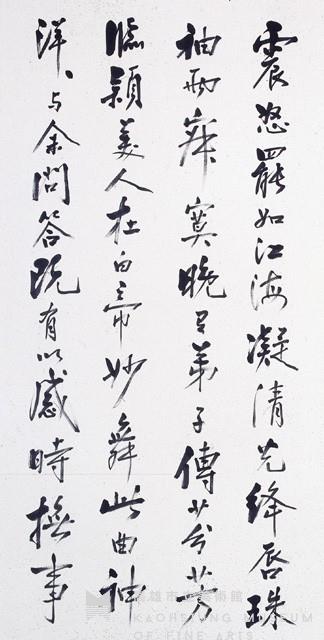 震怒罷如江海凝清光絳唇珠
袖兩寂寞晚有弟子傳芬芳
臨潁美人在白帝妙舞此曲神
洋、与余問答既有以感時撫事
高雄市立美術館
KAOHSIUNG MUSEUM
OF FINE ARTS